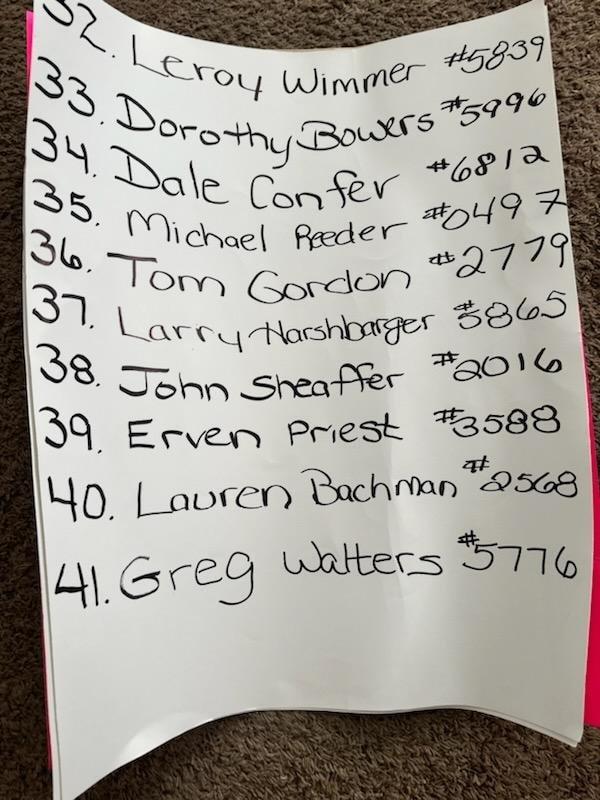 32. Leroy Wimmer #5839
33. Dorothy Bowers #5996
34. Dale Confer #6812
35. Michael Reeder #0497
36. Tom Gordon #2779
37. Larry Harshbarger #3865
38. John Sheaffer #2016
39. Erven Priest #3588
40. Lauren Bachman #2568
41. Greg Walters #5776